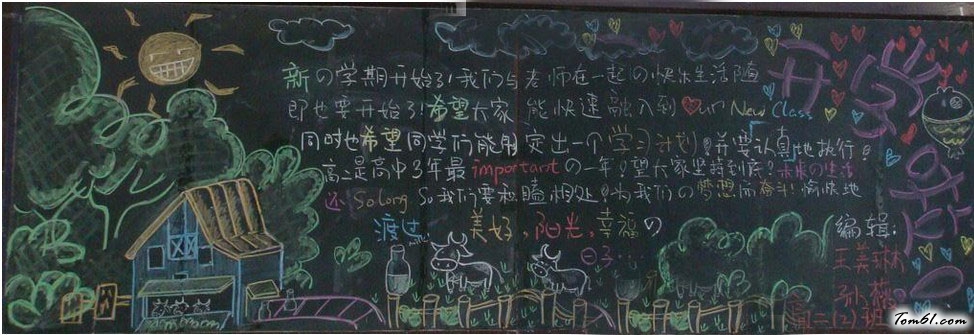 新の学期开始了!我们与老师在一起の快乐生活随
即也要开始了!希望大家 能快速融入到 our New Class
同时也希望同学们能制定出一个学习计划!并要认真地执行!
高二是高中3年最important の一年!望大家坚持到底!未来の生活
还So long So我们要和瞌相处!为我们の梦想而奋斗!愉快地
渡过 美好,阳光,幸福の
日子...
开学
编辑:
王美琳
孙
高二(2)班
Tom61.com